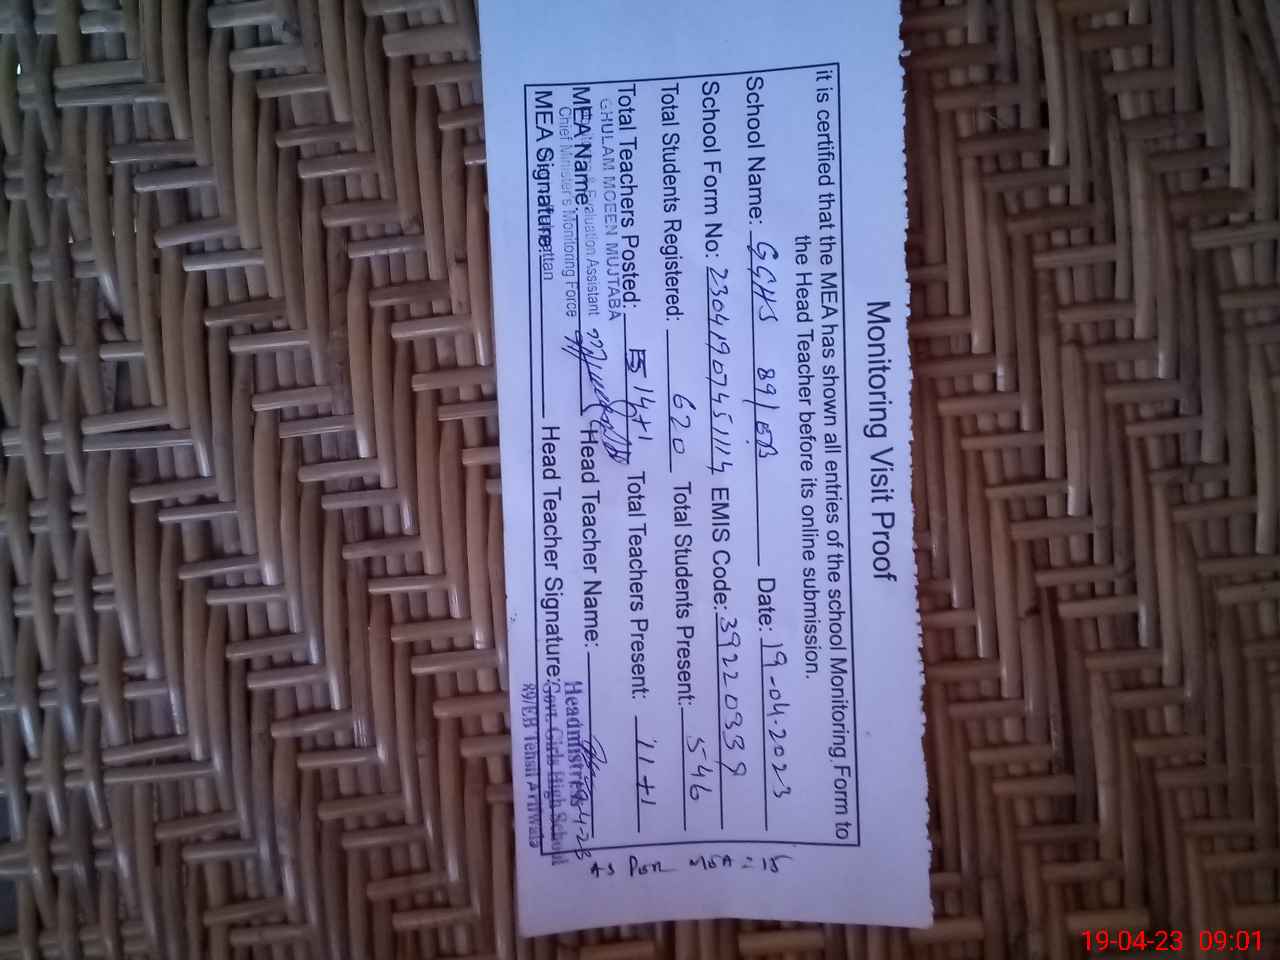 Monitoring Visit Proof
it is certified that the MEA has shown all entries of the school Monitoring Form to
the Head Teacher before its online submission.
School Name: GGHS 89/EB Date: 19-04-2023
School Form No: 2304190745114 EMIS Code: 39220339
Total Students Registered: 620 Total Students Present: 546
Total Teachers Posted: 14+1 Total Teachers Present: 11+1
GHULAM MOEEN MUJTABA
MEA Name: Head Teacher Name:
& Evaluation Assistant
Chief Minister's Monitoring Force
MEA Signature: Head Teacher Signature:
Headmistress
Govt. Girls High School
89/EB Tehsil Arifwala
19-04-23 09:01